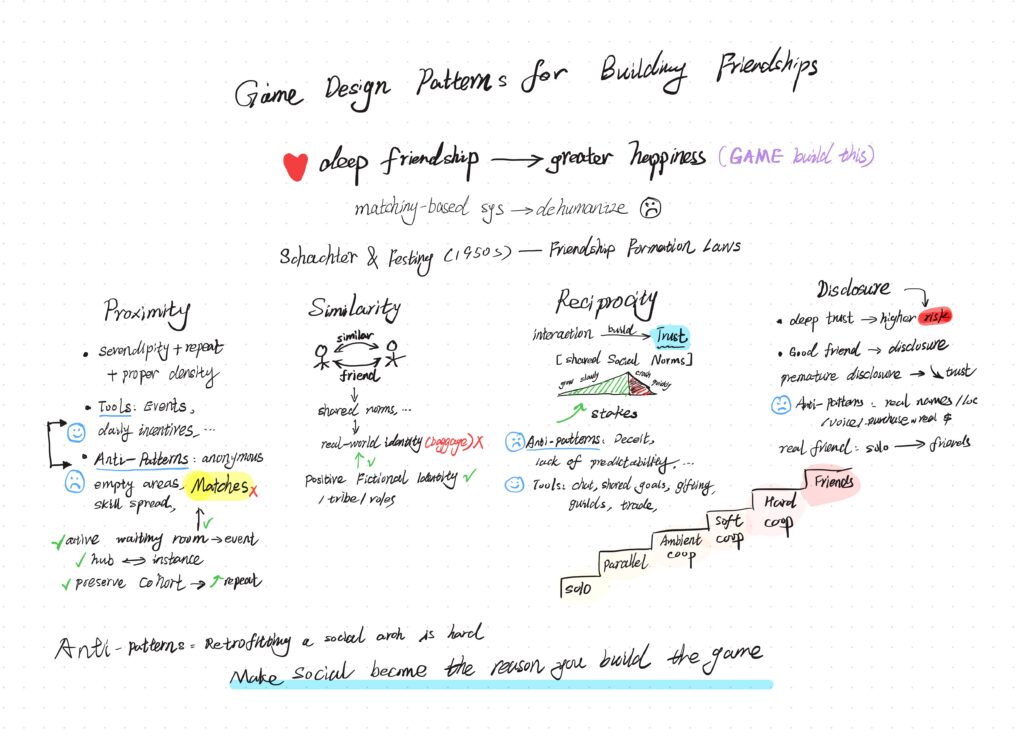 Game Design Patterns for Building Friendships
deep friendship → greater happiness (GAME build this)
matching-based sys → dehumanize
Schachter & Festing (1950s) — Friendship Formation Laws
Proximity
• serendipity + repeat
+ proper density
• Tools: Events,
daily incentives, ...
• Anti-Patterns: anonymous
empty areas, Matches x
skill spread,
✓ active waiting room → event
✓ hub ↔ instance
✓ preserve cohort → ↑ repeat
Similarity
similar
friend
shared norms, ...
real-world identity (baggage) x
✓
Positive Fictional Identity ✓
/ tribe / roles
Reciprocity
interaction build → Trust
[shared Social Norms]
grow slowly crash quickly
stakes
Anti-patterns: Deceit,
lack of predictability, ...
Tools: chat, shared goals, gifting,
guilds, trade,
Disclosure
• deep trust → higher risk
• Good friend → disclosure
premature disclosure → ↘ trust
Anti-Patterns: real names / loc
/ voice / purchase w real $
real friend: solo → friends
Solo
parallel
Ambient
coop
Soft
coop
Hard
coop
Friends
Anti-patterns = Retrofitting a social arch is hard
Make social become the reason you build the game